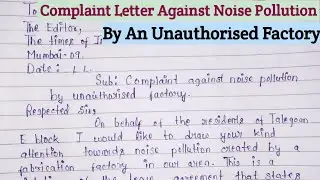 To
Complaint Letter Against Noise Pollution
The Editor,
By An Unauthorised Factory
The times of
Mumbai-09.
Date: LL.
Sub: Complaint against noise pollution
by unauthorised factory.
Respected Sir,
On behalf of the residents of Talegaon
E block I would like to draw your kind
attention towards noise pollution created by a
fabrication factory in our area. This is a
of the lease agreement that states